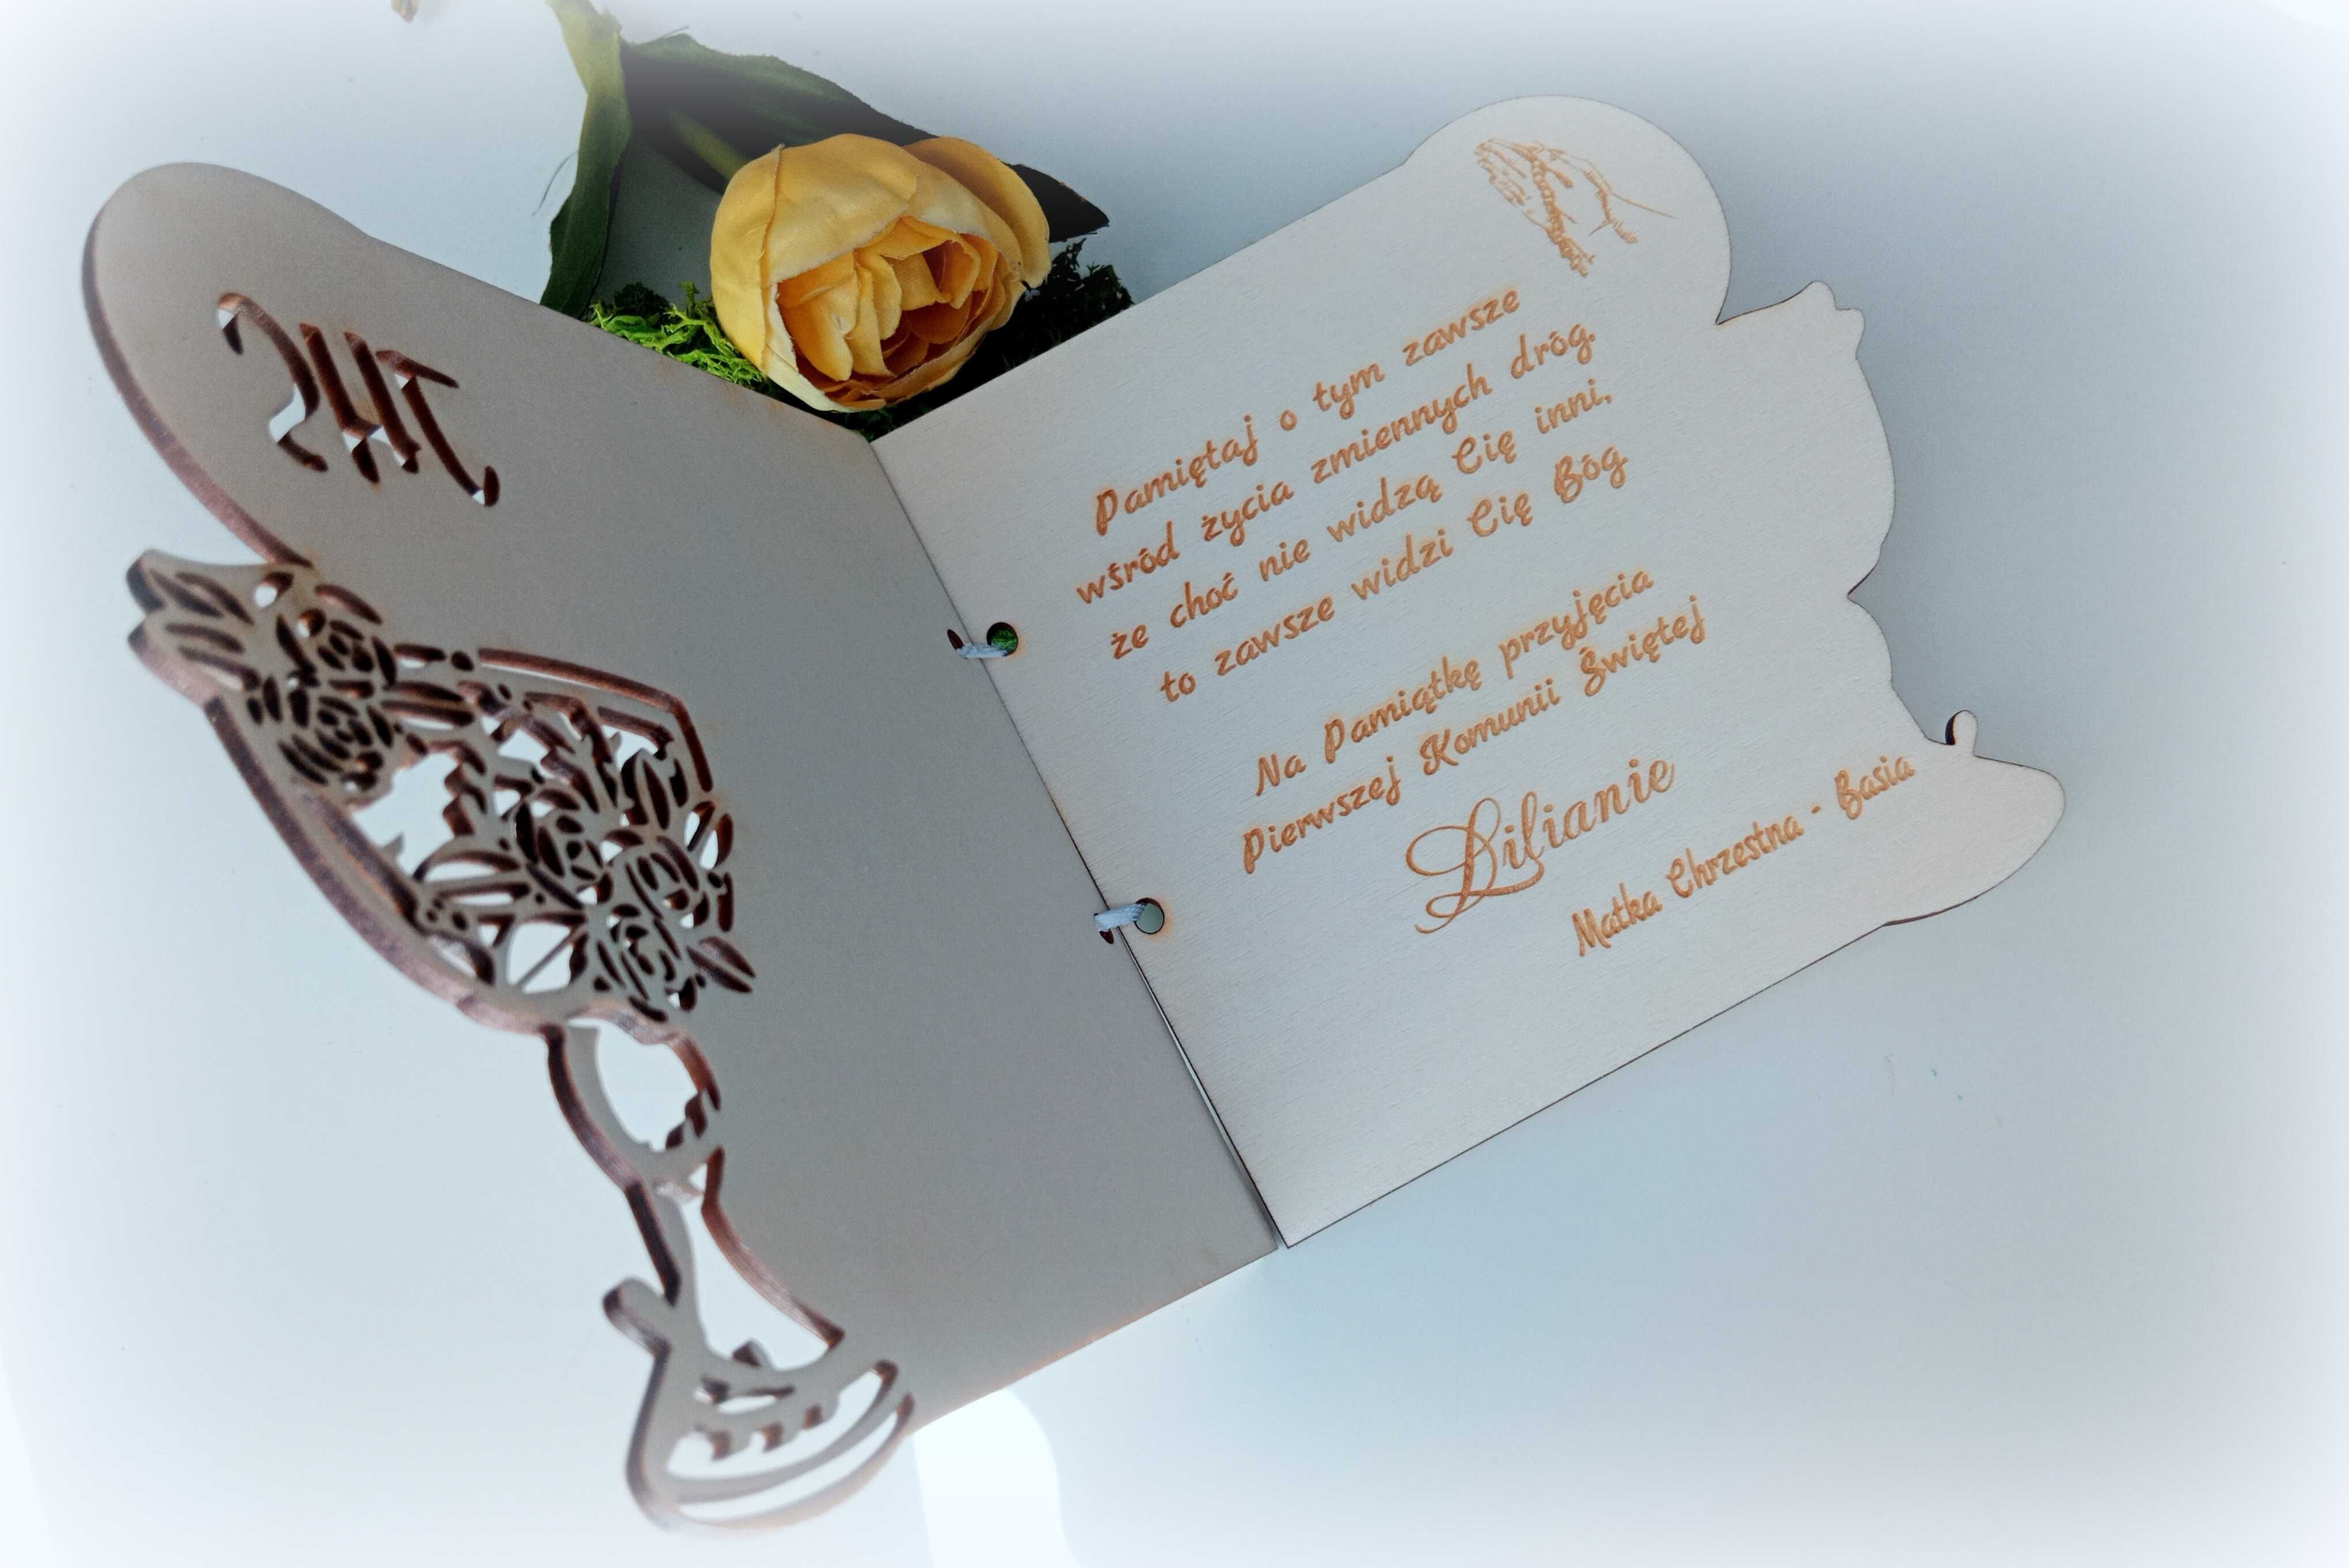 IHS
Pamiętaj o tym zawsze
wśród życia zmiennych dróg
że choć nie widzą Cię inni,
to zawsze widzi Cię Bóg
Na Pamiątkę przyjęcia
Pierwszej Komunii Świętej
Lilianie
Matka Chrzestna - Basia